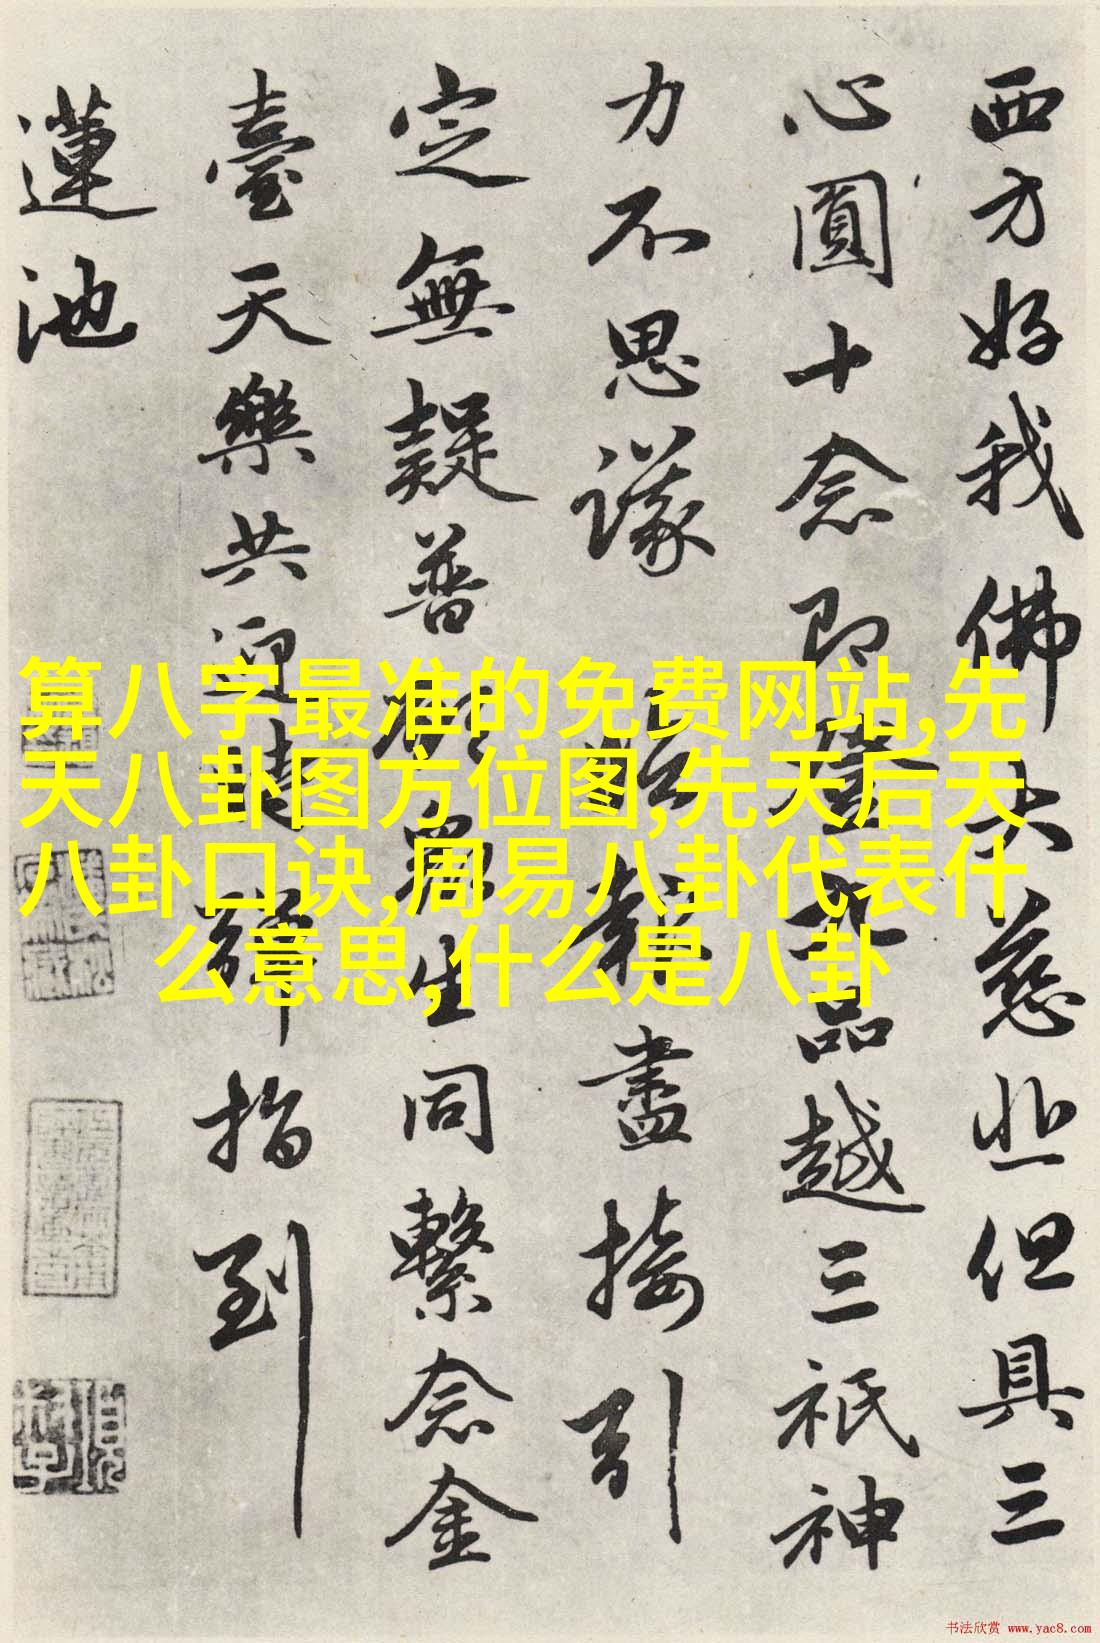 西方好我佛大慈悲但具三
心圓十念即登上品越三祇神
力不思議報盡接引
定無疑普願眾生同繫念金
臺天樂共迎彈指到
蓮池
算八字最准的免费网站,先
天八卦图方位图,先天后天
八卦口诀,周易八卦代表什
么意思,什么是八卦
书法欣赏 www.yac8.com